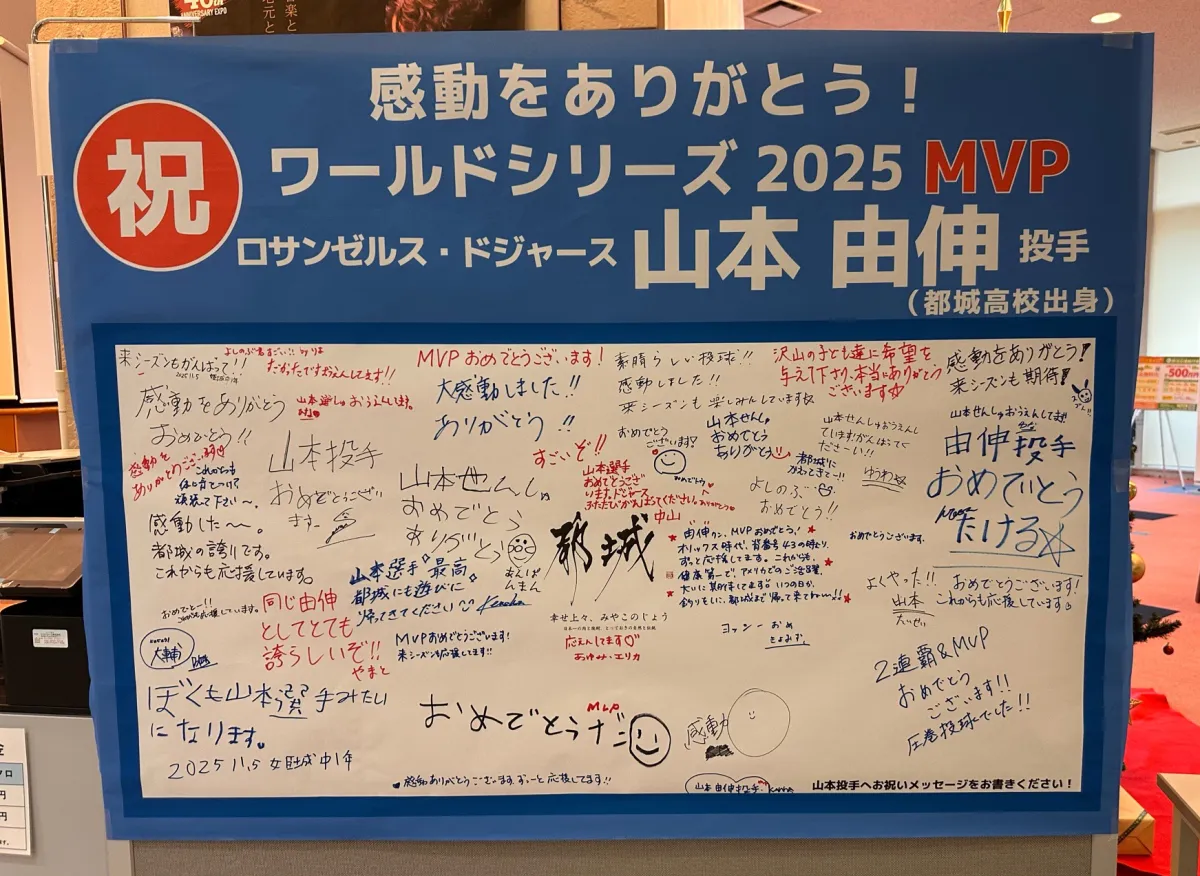 感動をありがとう!
祝
ワールドシリーズ 2025 MVP
ロサンゼルス・ドジャース 山本 由伸 投手
(都城高校出身)
来シーズンもがんばって!!
2025.11.5
たかったですおうえんしてます!!
感動をありがとう
おめでとう!!
山本選しゅおうえんします。
MVPおめでとうございます!
大感動しました!!
ありがとう!!
素晴らしい投球!!
感動しました!!
来シーズンも楽しみにしています
沢山の子ども達に希望を
与えて下さり、本当にありがとう
ございます
感動をありがとう!
来シーズンも期待!
感動を
ありがとうございます
これからも
頑張って下さい~
山本投手
おめでとうござい
ます
すごいぞ!!
おめでとう
ございます?
山本せんしゅ
おめでとう
ありがとう
山本せんしゅおうえん
していますがんばってく
ださーい!!
山本せんしゅおうえんしてます!
由伸投手
おめでとう
たける
山本せんしゅ
おめでとう
ありがとう
あんぱんまん
山本選手
おめでとうござ
います。ドジャース
またたびがんばってください。
中山
都城に
かえってきてー!!
よしのぶ
おめでとう!!
ゆわ
感動した~。
都城の誇りです。
これからも応援しています。
山本選手 最高
都城にも遊びに
帰ってきてください
都城
幸せ上々、みやこのじょう
日本一の肉と焼酎、とっておきの自然と伝統
応えんしてます♡
あゆみ・エリカ
由伸クン、MVPおめでとう!
オリックス時代、背番号43の時より、
ずっと応援してます。これからも、
健康第一で、アメリカでのご活躍、
大いに期待してます。いつの日か、
釣りをしに、都城まで帰って来てね~!!
おめでとうございます。
よくやった!!
山本
たいせい
おめでとうございます!
これからも応援しています
おめでとー!!
これからも応援しています。
同じ由伸
としてとても
誇らしいぞ!!
やまと
大輔
MVPおめでとうございます!
来シーズンも応援してます!!
ヨッシー おめ
2連覇&MVP
おめでとう
ございます!!
圧巻投球でした!!
ぼくも山本選手みたい
になります。
2025 11.5 中1年
おめでとうナニ
感動
感動ありがとうございます。ずーっと応援してます!!
山本由伸投手
山本投手へお祝いメッセージをお書きください!
500円